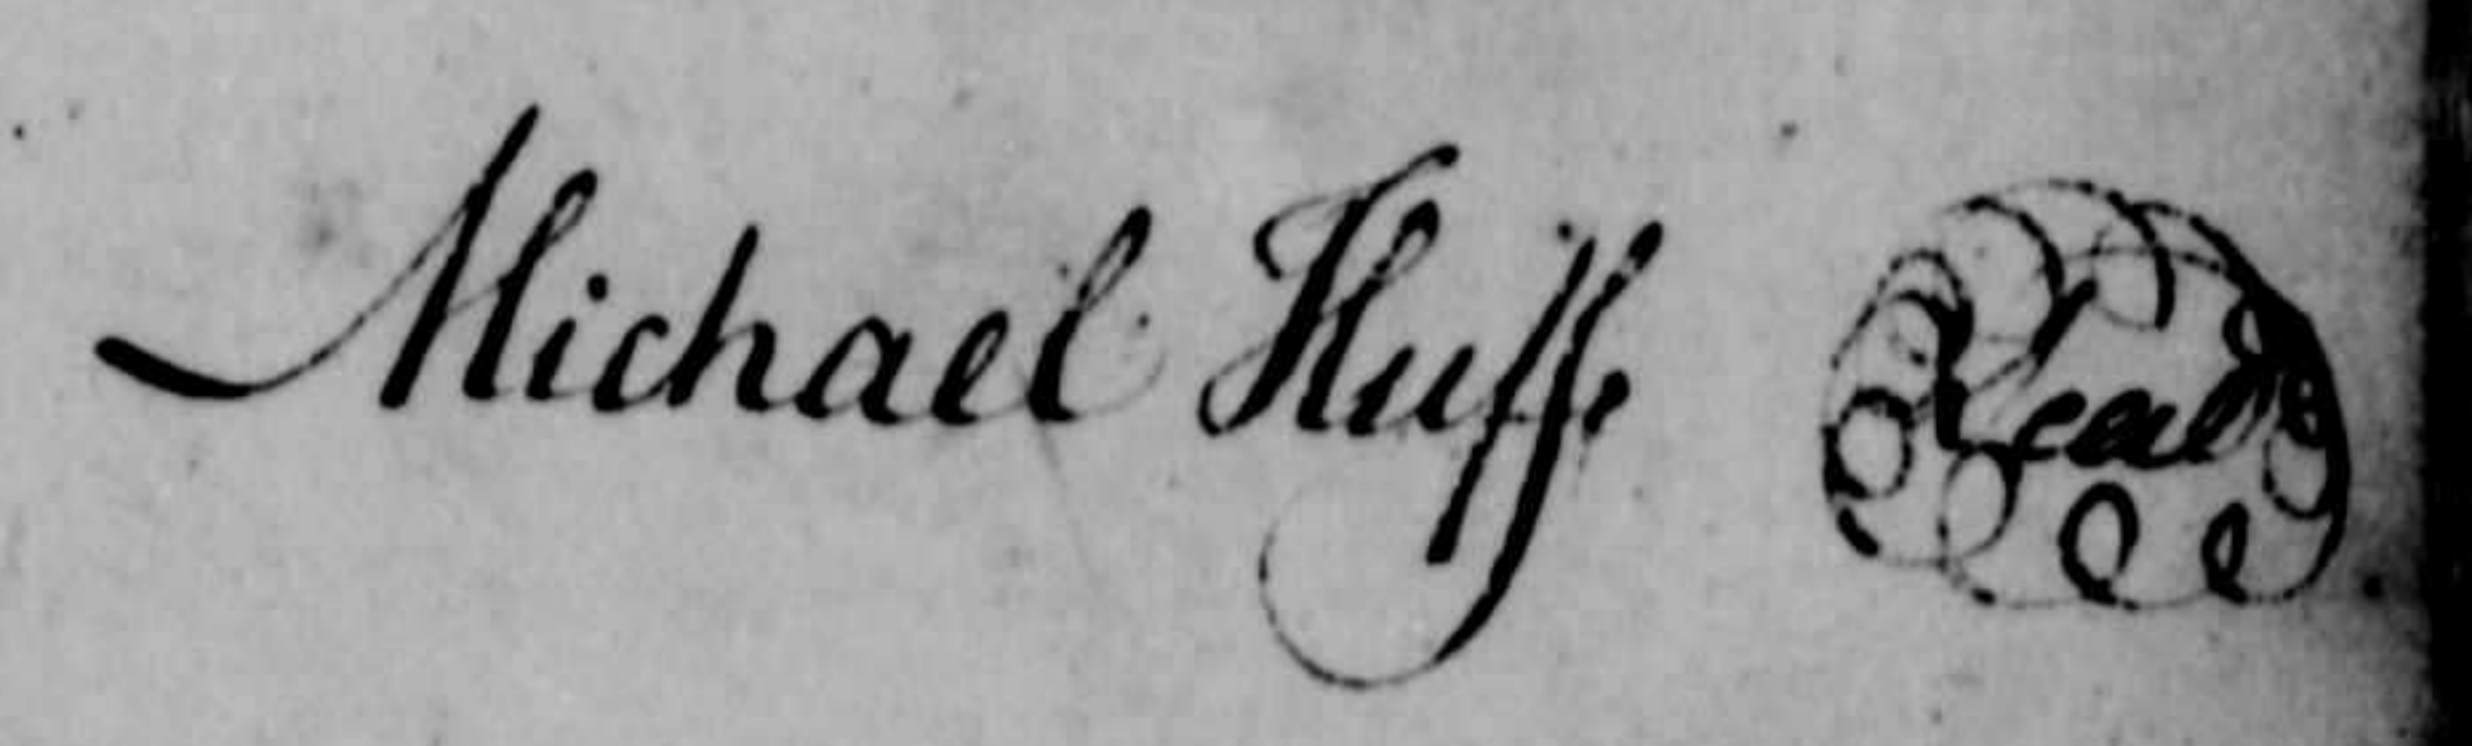 Michael Huff Seal